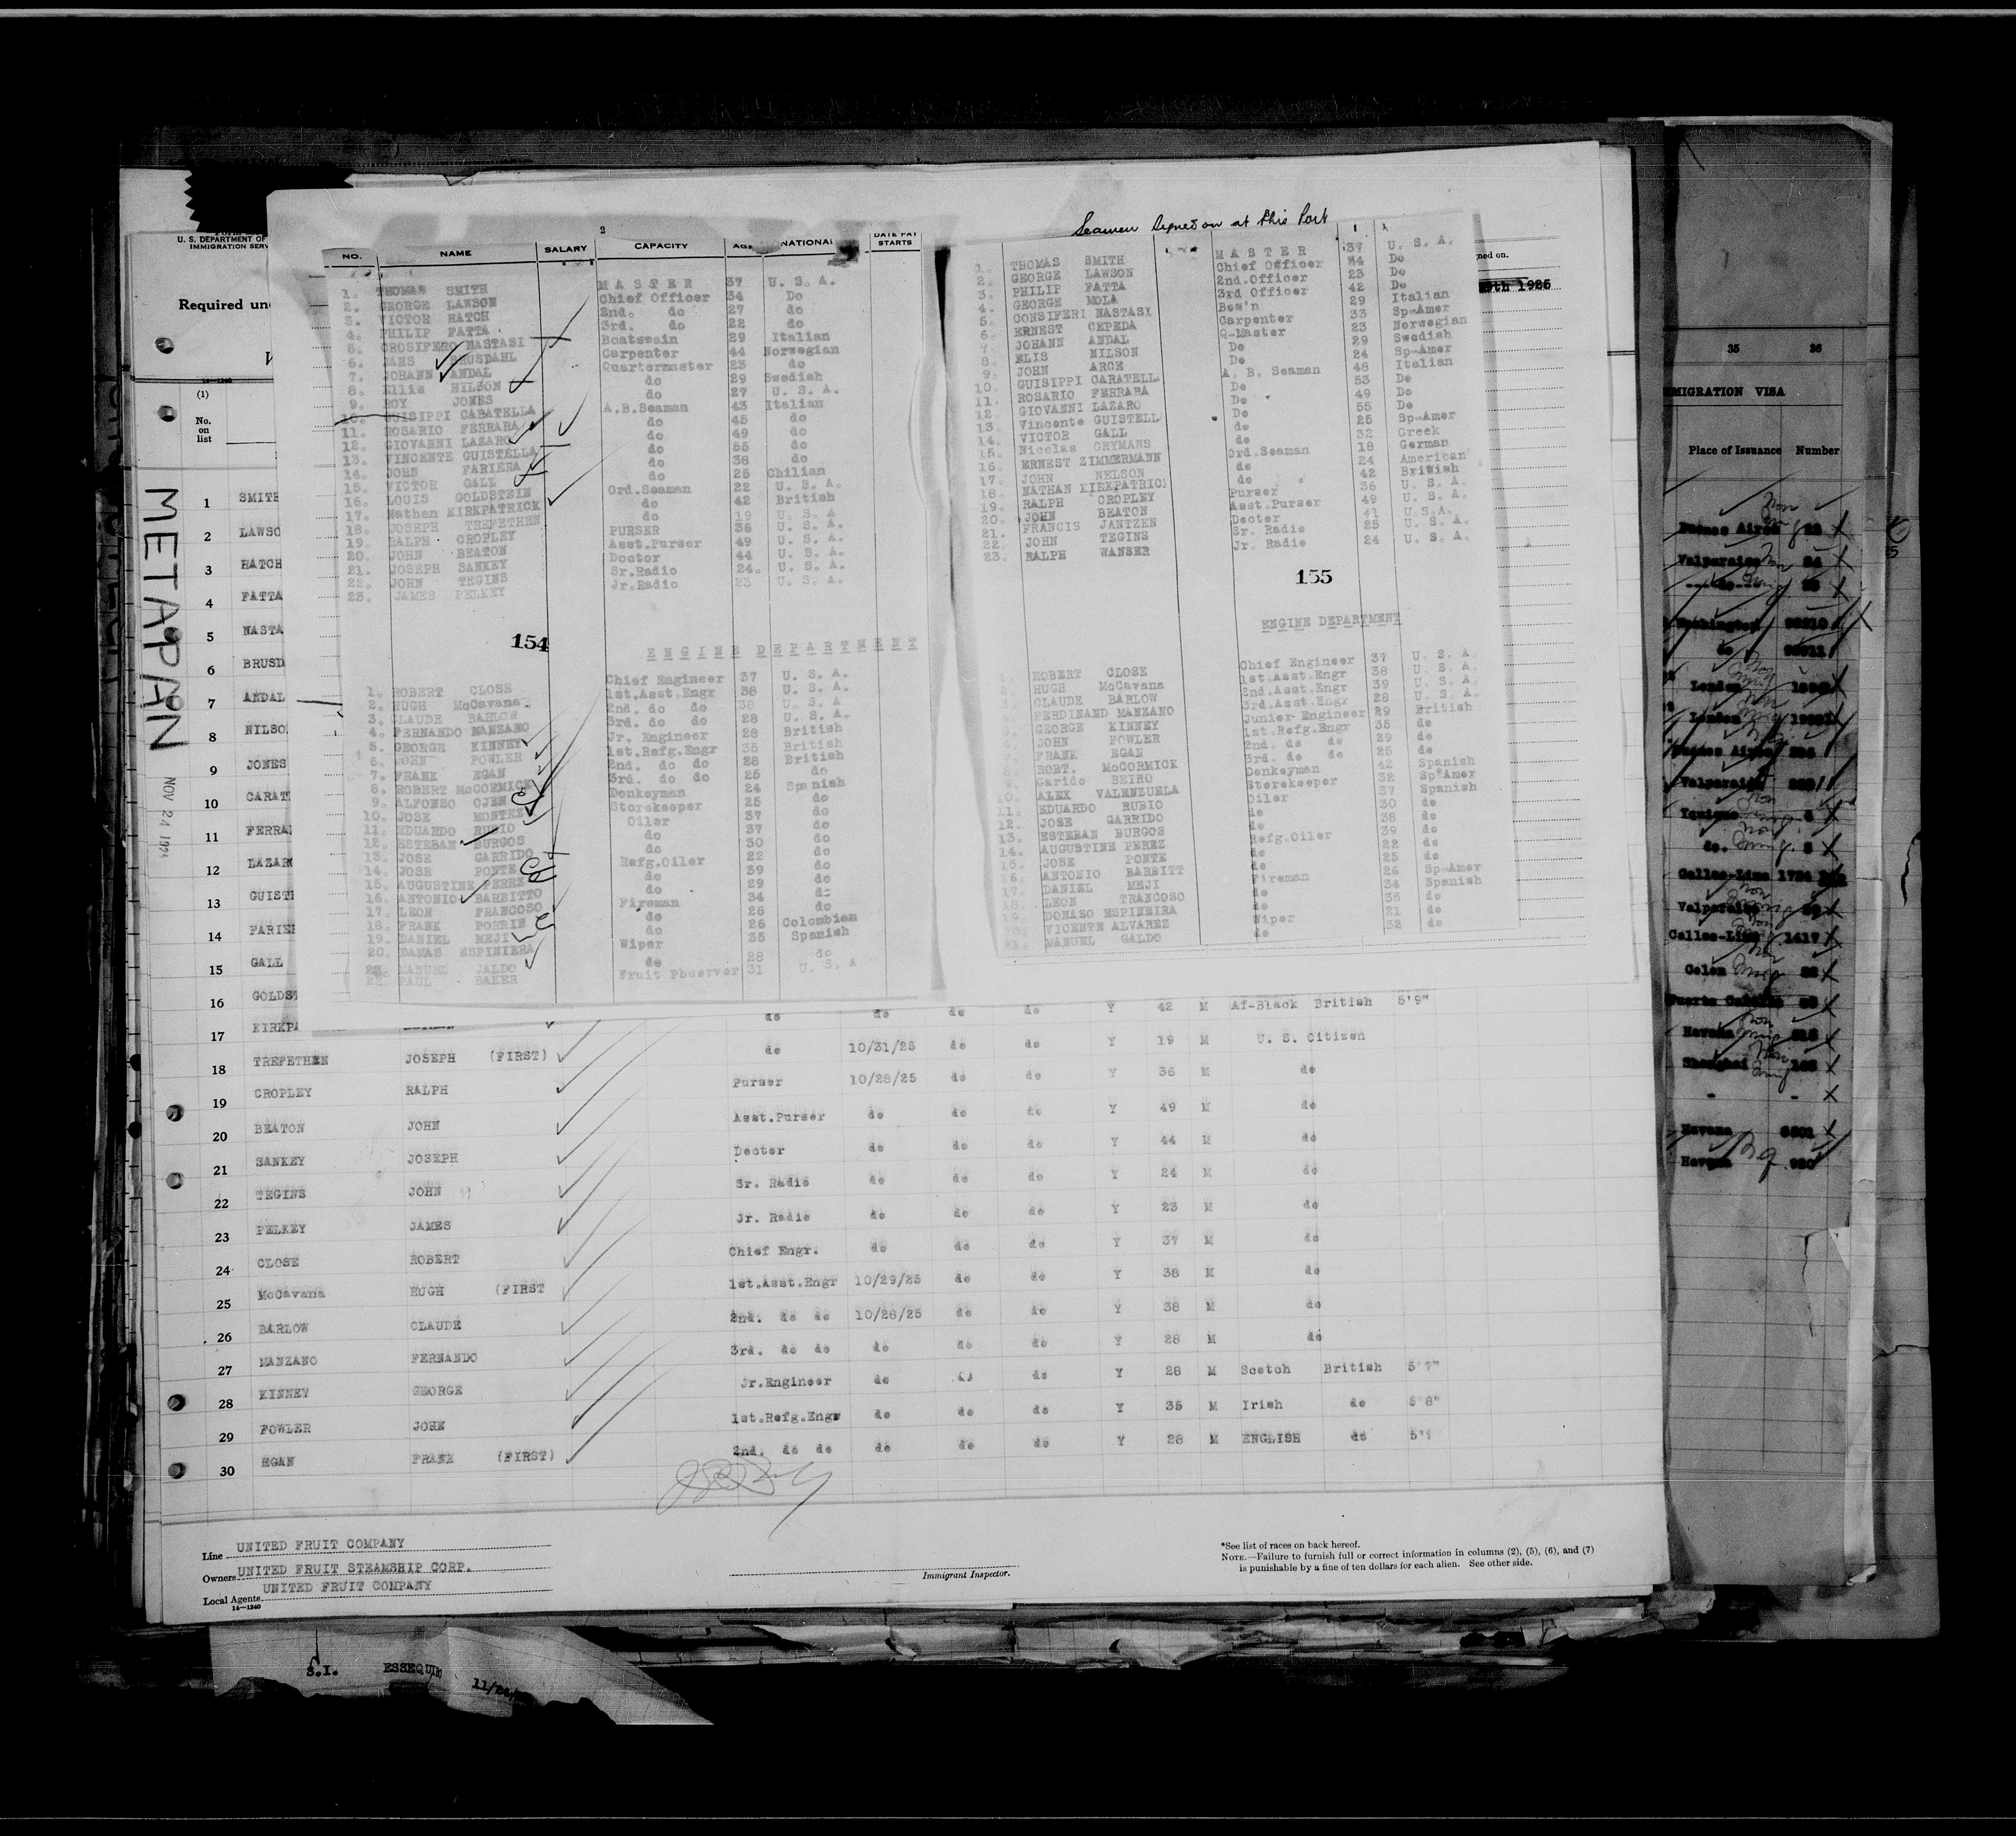 Seamen Signed on at this Port
U. S. DEPARTMENT OF
IMMIGRATION SERV
Required un
(1)
No. on list
METAPAN
NOV 24 192
2
NO. NAME SALARY CAPACITY AGE NATIONAL DATE PAY STARTS
1. THOMAS SMITH MASTER 37 U. S. A.
2. GEORGE LAWSON Chief Officer 34 Do
3. VICTOR HATCH 2nd. do 27 do
4. PHILIP FATTA 3rd. do 22 do
5. CROSIFERO NASTASI Boatswain 29 Italian
6. HANS BRUSDAHL Carpenter 44 Norwegian
7. JOHANN ANDAL Quartermaster 23 do
8. Ellis NILSON do 29 Swedish
9. ROY JONES do 27 U. S. A.
10. GUISIPPI CARATELLA A.B.Seaman 43 Italian
11. ROSARIO FERRARA do 45 do
12. GIOVANNI LAZARO do 49 do
13. VINCENTE GUISTELLA do 55 do
14. JOHN FARIERA do 38 do
15. VICTOR GALL do 25 Chilian
16. LOUIS GOLDSTEIN Ord.Seaman 22 U. S. A.
17. Nathan KIRKPATRICK do 42 British
18. JOSEPH TREFETHEN do 19 U. S. A
19. RALPH CROPLEY PURSER 36 U. S. A.
20. JOHN BEATON Asst.Purser 49 U. S. A.
21. JOSEPH SANKEY Doctor 44 U. S. A.
22. JOHN TEGINS Sr.Radio 24. U. S. A.
23. JAMES PELKEY Jr.Radio 23 U. S. A.
154
ENGINE DEPARTMENT
1. ROBERT CLOSE Chief Engineer 37 U. S. A.
2. HUGH McCavana 1st.Asst.Engr 38 U. S. A.
3. CLAUDE BARLOW 2nd. do do 38 U. S. A
4. FERNANDO MANZANO 3rd. do do 28 U. S. A.
5. GEORGE KINNEY Jr. Engineer 28 British
6. JOHN FOWLER 1st.Refg.Engr 35 British
7. FRANK EGAN 2nd. do do 28 British
8. ROBERT McCORMICK 3rd. do do 25 do
9. ALFONSO OJEN Donkeyman 24 Spanish
10. JOSE MONTEZ Storekeeper 25 do
11. EDUARDO RUBIO Oiler 37 do
12. ESTEBAN BURGOS do 37 do
13. JOSE GARRIDO do 30 do
14. JOSE PONTE Refg.Oiler 22 do
15. AUGUSTINE PEREZ do 39 do
16. ANTONIO BARBITTO do 29 do
17. LEON FRANCOSO Fireman 34 do
18. FRANK PORRIN do 26 do
19. DANIEL MEJI do 26 Colombian
20. DAMAS ESPINIERA Wiper 35 Spanish
MANUEL JALDO do 28 do
22. PAUL BAKER Fruit Observer 31 U. S. A
1. THOMAS SMITH MASTER 37 U. S. A.
2. GEORGE LAWSON Chief Officer 34 Do
3. PHILIP FATTA 2nd.Officer 23 Do
4. GEORGE MOLA 3rd Officer 42 Do
5. CONSIFERI NASTASI Bos'n 29 Italian
6. ERNEST CEPEDA Carpenter 33 Sp-Amer
7. JOHANN ANDAL Q-Master 23 Norwegian
8. ELIS NILSON Do 29 Swedish
9. JOHN ARCE Do 24 Sp-Amer
10. GUISIPPI CARATELL A. B. Seaman 48 Italian
11. ROSARIO FERRARA Do 53 Do
12. GIOVANNI LAZARO Do 49 Do
13. Vincente GUISTELL Do 55 Do
14. VICTOR GALL do 25 Sp-Amer
15. Nicolas GRYMANS do 32 Greek
16. ERNEST ZIMMERMANN Ord.Seaman 18 German
17. JOHN NELSON do 24 American
18. NATHAN KIRKPATRICK do 42 British
19. RALPH CROPLEY Purser 36 U. S. A.
20. JOHN BEATON Asst.Purser 49 U. S. A.
21. FRANCIS JANTZEN Docter 41 U.S.A.
22. JOHN TEGINS Sr. Radio 25 U. S. A.
23. RALPH WANSER Jr. Radio 24 U. S. A.
155
ENGINE DEPARTMENT
ROBERT CLOSE Chief Engineer 37 U. S. A.
HUGH McCavana 1st.Asst.Engr 38 U. S. A.
CLAUDE BARLOW 2nd.Asst.Engr 39 U. S. A.
FERDINAND MANZANO 3rd.Asst.Engr 28 U. S. A.
GEORGE KINNEY Junior Engineer 29 British
JOHN FOWLER 1st.Refg.Engr 35 de
FRANK EGAN 2nd. de de 29 de
ROBT. McCORMICK 3rd. de de 25 de
Garido BEIRO Donkeyman 42 Spanish
10. ALEX VALENZUELA Storekeeper 32 Sp*Amer
11. EDUARDO RUBIO Oiler 37 Spanish
12. JOSE GARRIDO de 30 de
13. ESTEBAN BURGOS de 38 de
14. AUGUSTINE PEREZ Refg.Oiler 39 de
15. JOSE PONTE de 22 de
16. ANTONIO BARBITT de 25 de
17. DANIEL MEJI Fireman 26 Sp-Amer
18. LEON TRANCOSO de 34 Spanish
19. DOMASO ESPINEIRA de 35 de
VICENTE ALVAREZ Wiper 31 de
21. MANUEL GALDO de 32 de
ned on.
th 1925
1 SMITH
2 LAWSO
3 HATCH
4 FATTA
5 NASTA
6 BRUSD
7 ANDAL
8 NILSO
9 JONES
10 CARAT
11 FERRA
12 LAZARO
13 GUIST
14 FARIE
15 GALL
16 GOLDST
17 KIRKPA do do do do Y 42 M Af-Black British 5'9"
18 TREFETHEN JOSEPH (FIRST) do 10/31/25 do do Y 19 M U. S. Citizen
19 CROPLEY RALPH Purser 10/28/25 do do Y 36 M do
20 BEATON JOHN Asst.Purser do do do Y 49 M do
21 SANKEY JOSEPH Docter do do do Y 44 M do
22 TEGINS JOHN Sr. Radio do do do Y 24 M do
23 PELKEY JAMES Jr. Radio do do do Y 23 M do
24 CLOSE ROBERT Chief Engr. do do do Y 37 M do
25 McCavana HUGH (FIRST 1st.Asst.Engr 10/29/25 do do Y 38 M do
26 BARLOW CLAUDE 2nd. do do 10/28/25 do do Y 38 M do
27 MANZANO FERNANDO 3rd. do do do do do Y 28 M do
28 KINNEY GEORGE Jr.Engineer do do Y 28 M Scotch British 5'7"
29 FOWLER JOHN 1st.Refg.Engr do do do Y 35 M Irish do 5'8"
30 EGAN FRANK (FIRST) 2nd. do do do do do Y 28 M ENGLISH do
Line UNITED FRUIT COMPANY
Owners UNITED FRUIT STEAMSHIP CORP.
Local Agents UNITED FRUIT COMPANY
14—1240
Immigrant Inspector.
*See list of races on back hereof.
NOTE.—Failure to furnish full or correct information in columns (2), (5), (6), and (7)
is punishable by a fine of ten dollars for each alien. See other side.
35 36
MIGRATION VISA
Place of Issuance Number
Buenos Aires
Valparaiso
Washington
do
London
London
Buenos Aires
Valparaiso
Iquique
do.
Callao-Lima 1724
Valparaiso
Callao-Lima 1417
Colon
Puerto
Havana
Shanghai
Havana
Havana
S.I. ESSEQUIB
11/24/